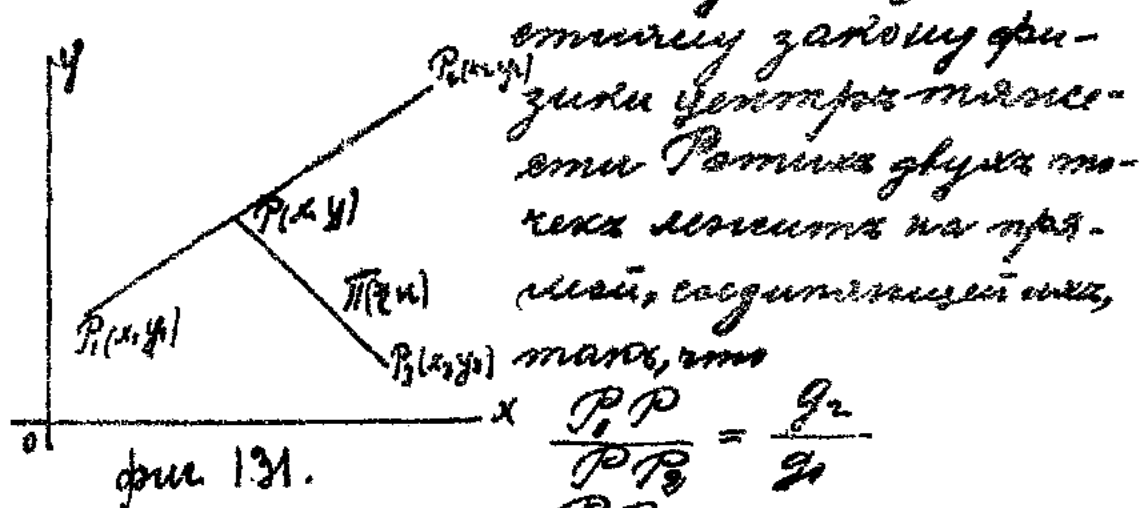 y
P₂(x₂y₂)
P(x, y)
Π(ξ η)
P₁(x₁y₁)
P₃(x₃y₃)
x
0
фиг. 131.
стному закону фи-
зики центръ тяже-
сти P этихъ двухъ то-
чекъ лежитъ на пря-
мой, соединяющей ихъ,
такъ, что
P₁P / PP₂ = g₂ / g₁